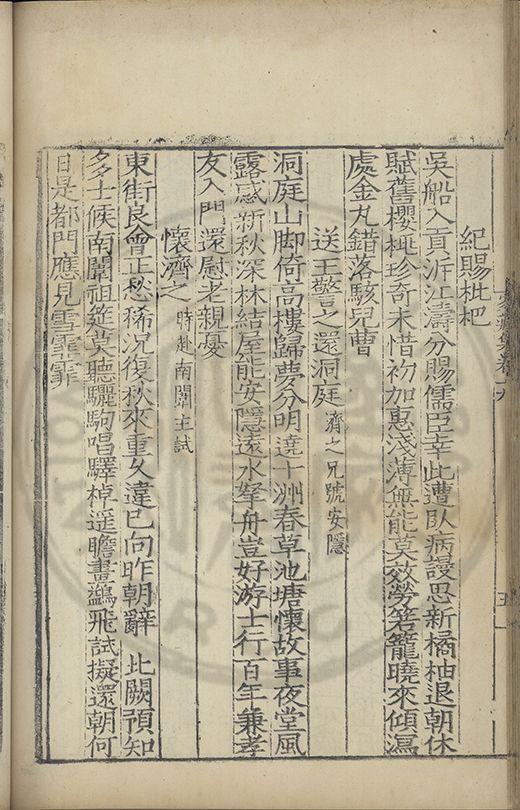 紀賜枇杷
吳船入貢泝江濤分賜儒臣幸此遭臥病謾思新橘柚退朝休
賦舊櫻桃珍奇未惜初加惠淺薄無能莫效勞箬籠曉來傾瀉
處金丸錯落駭兒曹
送王警之還洞庭 濟之兄號安隱
洞庭山脚倚高樓歸夢分明遶十洲春草池塘懷故事夜堂風
露感新秋深林結屋能安隱遠水拏舟豈好游士行百年兼孝
友入門還慰老親憂
懷濟之 時赴南闈主試
東街良會正愁稀況復秋來重久違已向昨朝辭 北闕預知
多士候南闈祖筵莫聽驪駒唱驛棹遥瞻畫鷁飛試擬還朝何
日是都門應見雪霏霏